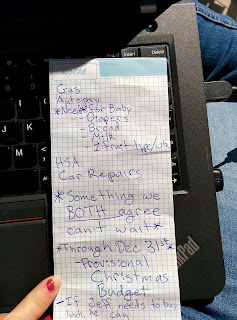 Gas
Autopay
*Needs for Baby
- Diapers
- Bread
- Milk
- 1 fruit-type/
HSA
Car Repairs
*Something we
BOTH agree
can't wait*
*Through Dec 31st*
-Provisional
Christmas
Budget
-If Jeff needs to buy
lunch, he can
Insert
ThinkPad